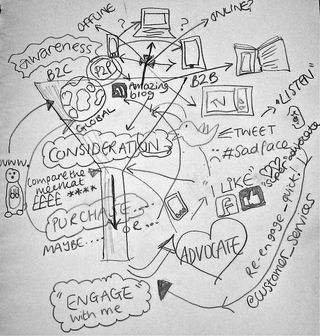 OFFLINE
?
?
ONLINE?
Awareness
B2C
P2P
Amazing
blog
B2B
TV
GLOBAL
"LISTEN"
TWEET
#sadface
CONSIDERATION
www.
Compare the
meerkat
££££ ****
I LIKE
f
advocate
PURCHASE...
MAYBE.... or ...
ADVOCATE
Re-engage-quick!
@customer_services
"ENGAGE"
with me